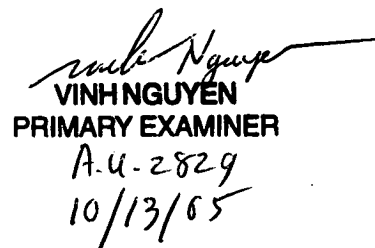 Nguyen
VINH NGUYEN
PRIMARY EXAMINER
A.U-2829
10/13/05